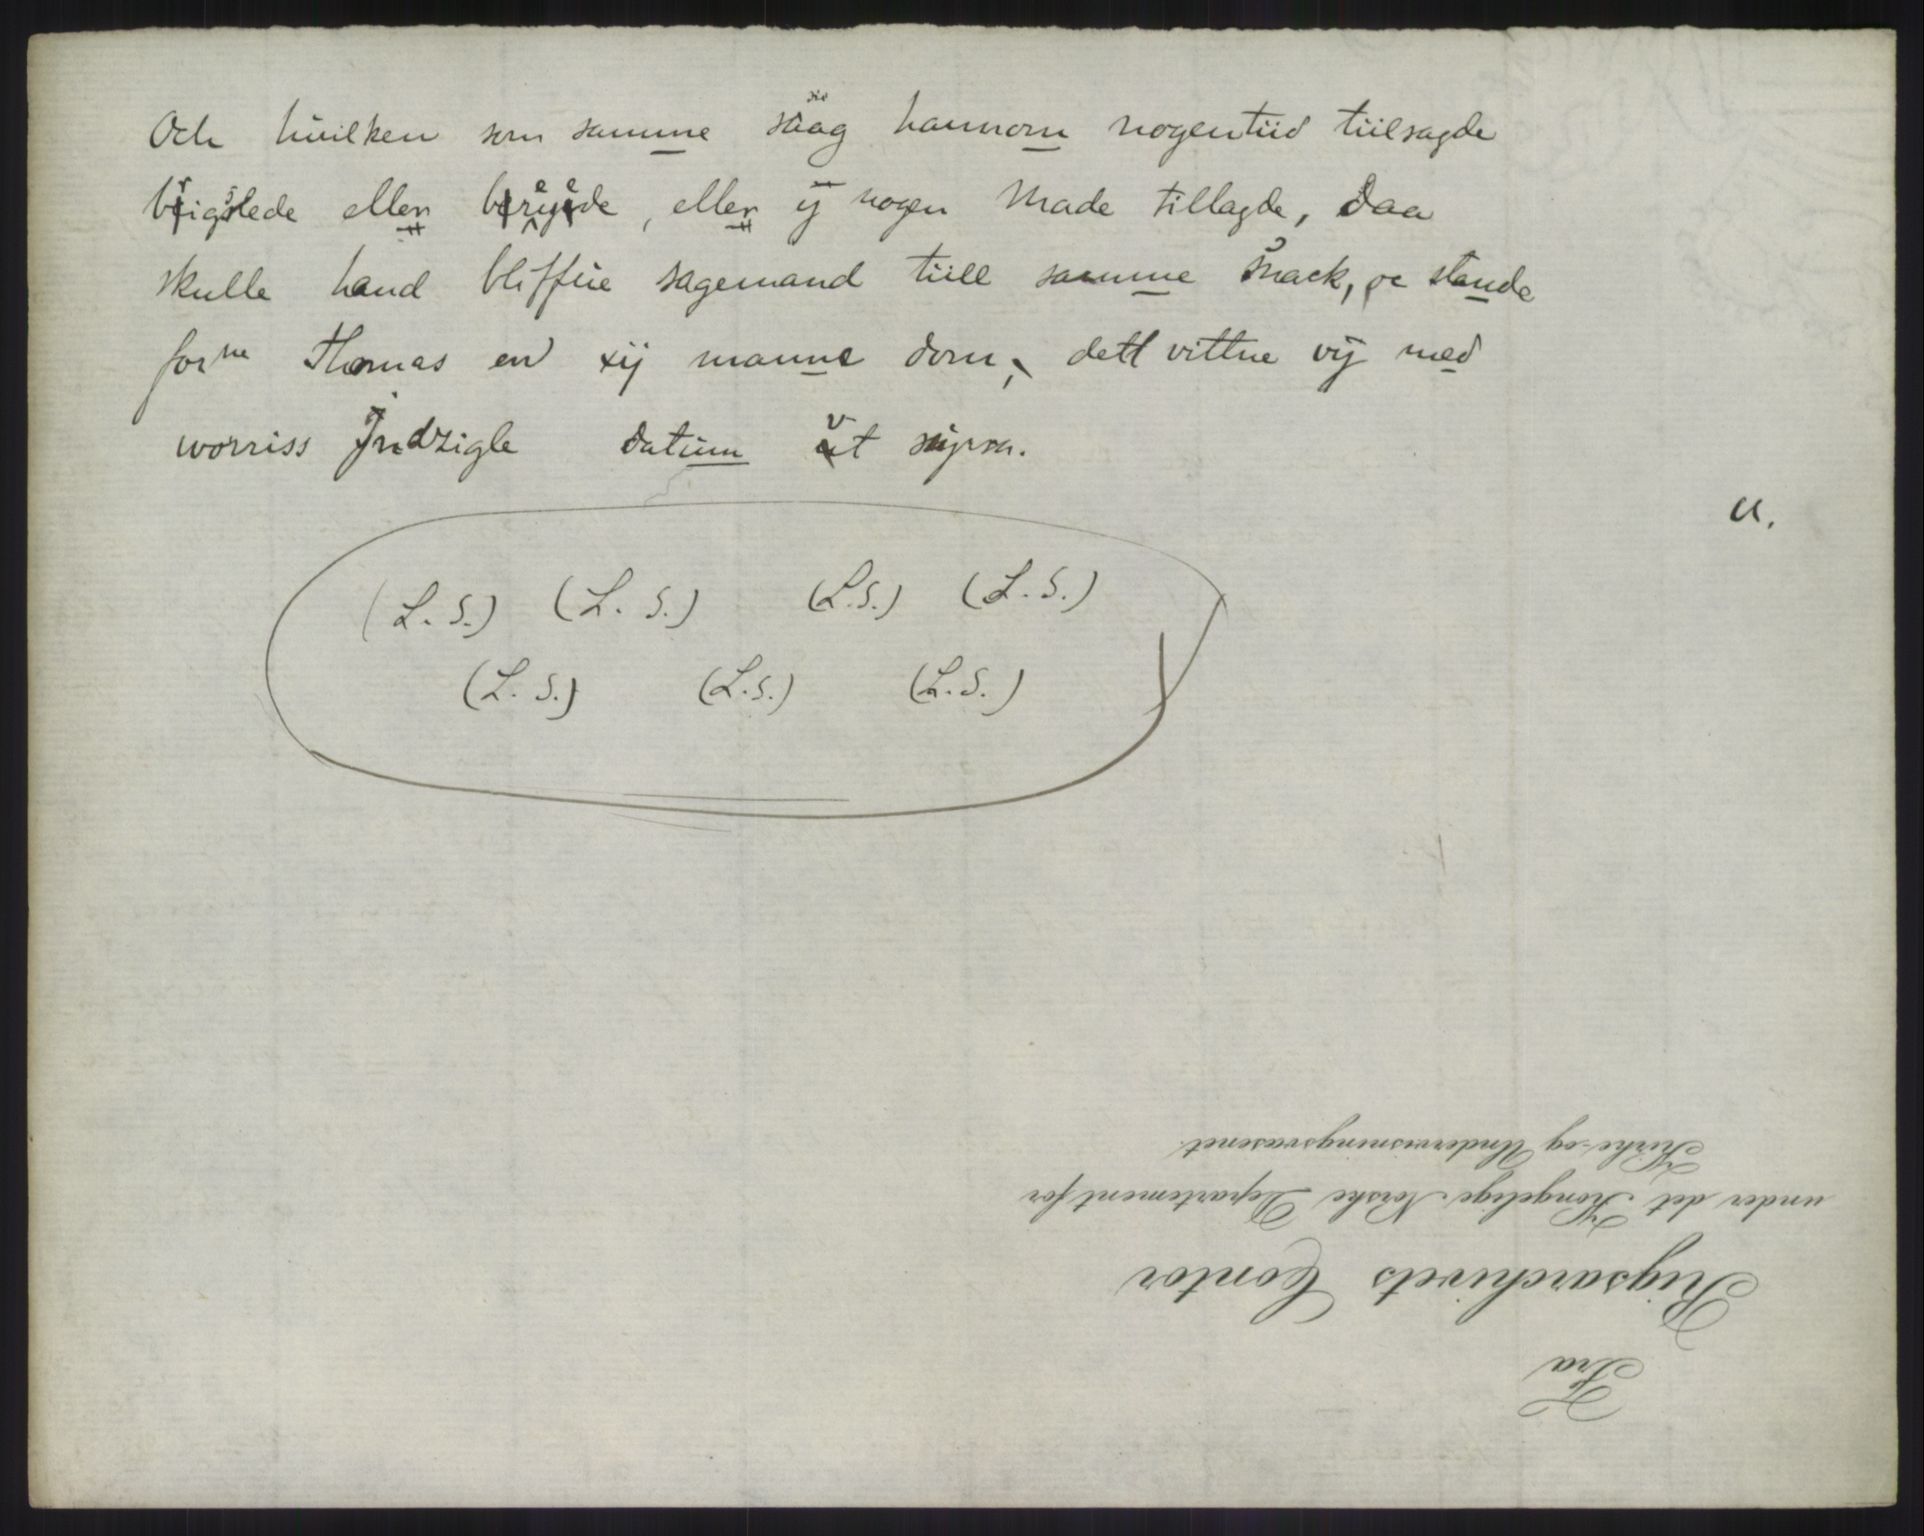 Och huilken som samme säag hannom nogentiid tiilsagde
brigslede eller beryede, eller ij nogen Made tillagde, daa
skulle hand bliffue sagemand tiill samme Snack, oc stande
forne Thomas en xij manne dom, dett vittne vij med
worriss Jndzigle datum vt supra.
U.
(L. S.) (L. S.) (L.S.) (L.S.)
(L. S.) (L.S.) (L.S.)
Fra
Rigsarchivets Contor
under det Kongelige Norske Departement for
Kirke- og Undervisningsvæsenet